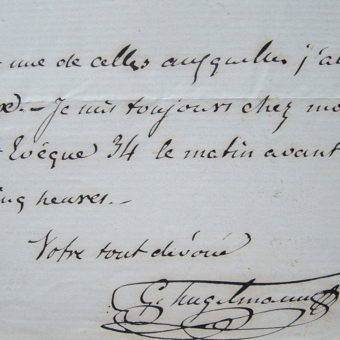 une de celles auxquelles j'ai
Je suis toujours chez mo
Evêque 34 le matin avant
inq heures.
Votre tout dévoué
G. Hugelmann